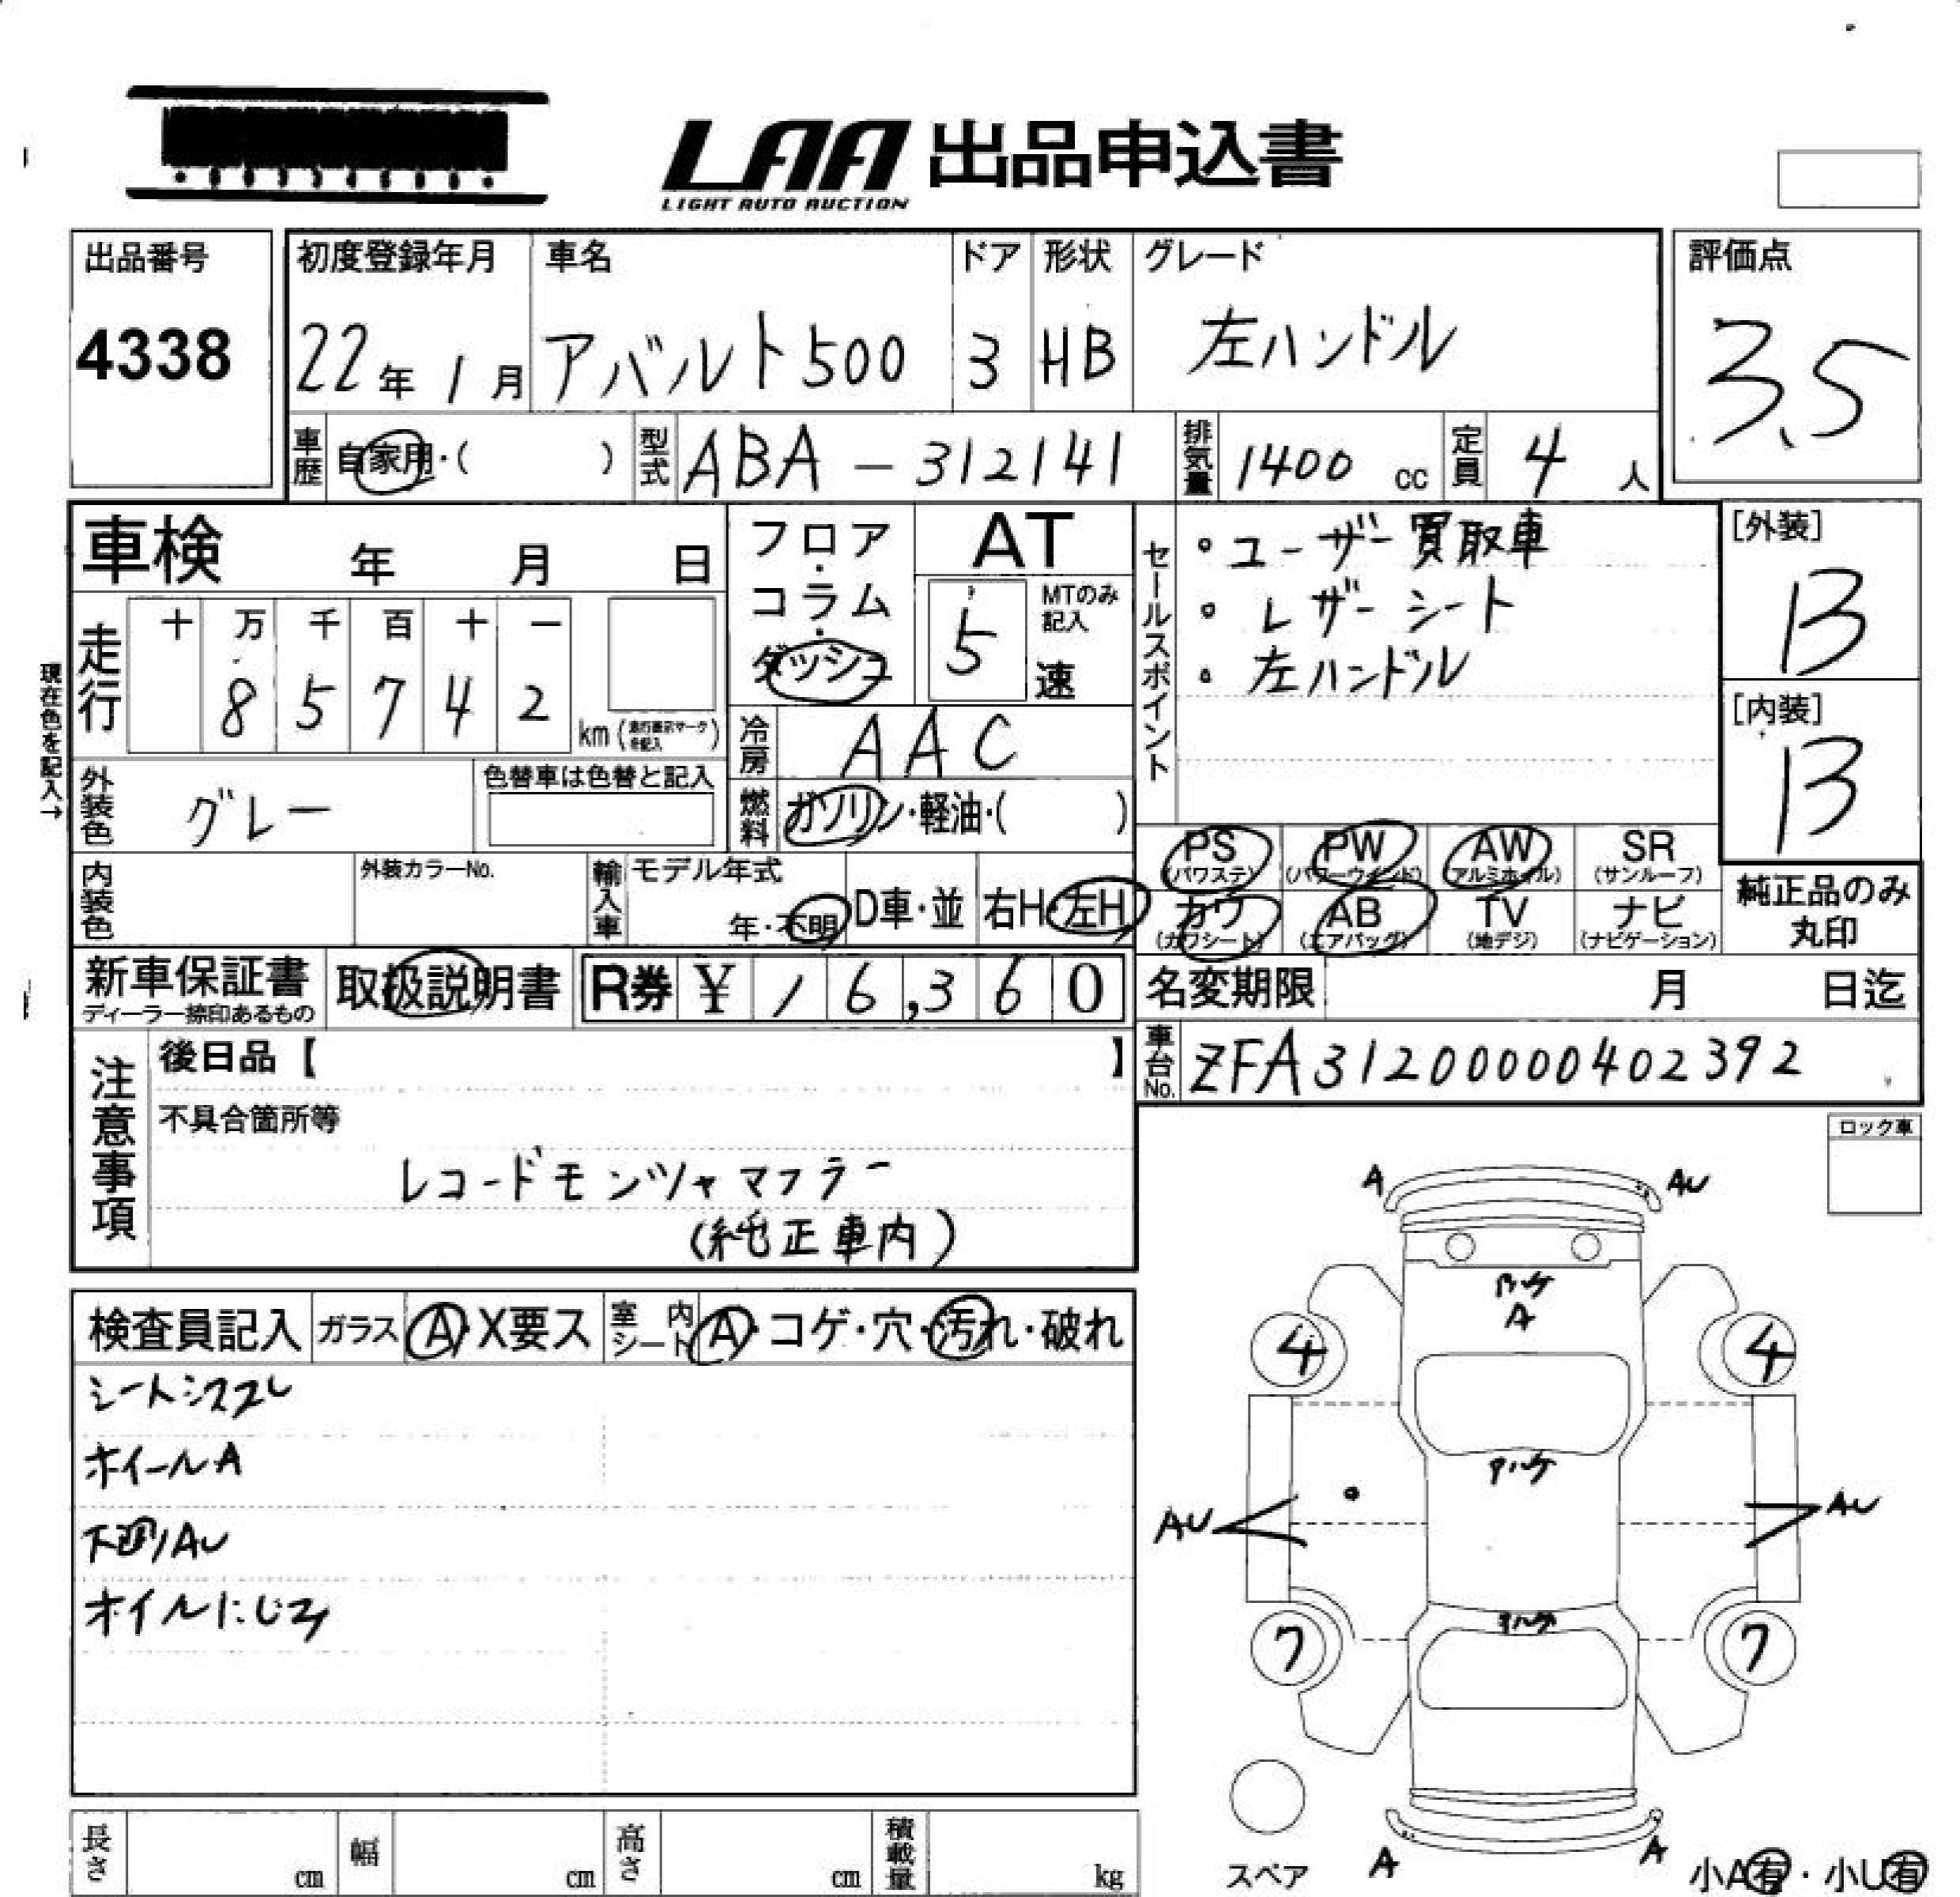 LAA 出品申込書
LIGHT AUTO AUCTION
出品番号
4338
初度登録年月
22年1月
車名
アバルト500
ドア
3
形状
HB
グレード
左ハンドル
評価点
3.5
車歴
自家用・( )
型式
ABA-312141
排気量
1400 cc
定員
4 人
車検 年 月 日
フロア・コラム・ダッシュ
AT
5
MTのみ記入
速
セールスポイント
・ユーザー買取車
・レザーシート
・左ハンドル
[外装]
B
[内装]
B
現在色を記入→
走行
十 万 千 百 十 一
8 5 7 4 2
km
冷房
AAC
外装色
グレー
色替車は色替と記入
燃料
ガソリン・軽油・( )
PS
(パワステ)
PW
(パワーウインド)
AW
(アルミホイル)
SR
(サンルーフ)
カワ
(カワシート)
AB
(エアバッグ)
TV
(地デジ)
ナビ
(ナビゲーション)
純正品のみ
丸印
内装色
外装カラーNo.
輸入車
モデル年式
年・不明
D車・並
右H・左H
新車保証書
ディーラー捺印あるもの
取扱説明書
R券 ¥ 16,360
名変期限 月 日迄
車台No.
ZFA31200000402392
注意事項
後日品【 】
不具合箇所等
レコードモンツァマフラー
(純正車内)
ロック車
検査員記入
ガラス
A・X要ス
室内シート
A・コゲ・穴・汚れ・破れ
ホイールA
下廻りAU
オイルにじみ
A
AU
A
4
4
AU
AU
7
7
A
A
スペア
小A有・小U有
長さ cm
幅 cm
高さ cm
積載量 kg